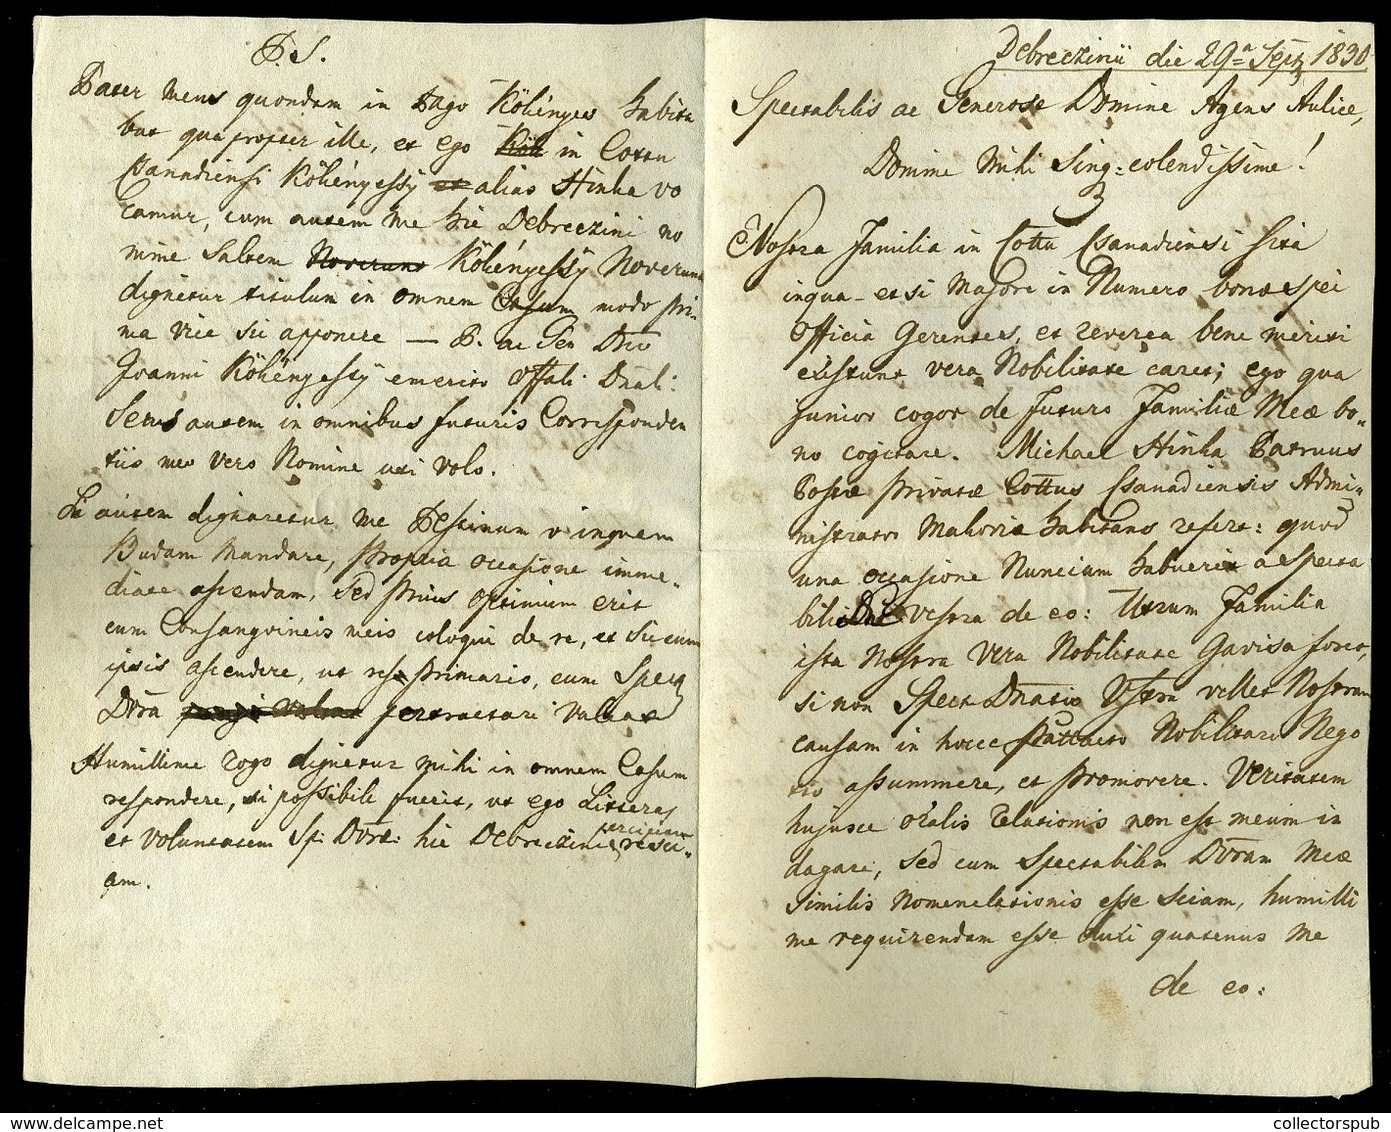 P.S.
Pater Meus quondam in Pago Kökényes habita
bat qua propter ille, et ego in Cottu
Csanadiensi Kökényessÿ alias Hinka vo
camur, cum autem me hic Debreczini no
mine Saltem Noverunt Kökényessÿ Noverunt
dignetur titulum in omnem Casum modo pri-
ma vice sic apponere — P. ac Gen Dno
Joanni Kökényessÿ emerito Offali Dnali:
Secus autem in omnibus futuris Corresponden
tiis meo vero Nomine uti volo.
Si autem dignaretur me Pestinum v inquem
Budam Mandare, propria occasione imme-
diate ascendam, Sed prius optimum erit
cum Consangvineis meis coloqui de re, et Sic cum
ipsis ascendere, ut re primario, cum Spect
Dona pertractari valeat
Humillime rogo dignetur mihi in omnem Casum
respondere, si possibile fuerit, ut ego Litteras
et voluntatem Sp: Donae: hic Debreczini resci-
am.
Debreczinii die 29=a Sept 1830
Spectabilis ac Generose Domine Agens Aulice,
Domine Mihi Sing: colendissime!
Nostra Familia in Cottu Csanadiensi sita
inqua- etsi Majori in Numero bonae spei
Officia Gerentes, et reverea bene meriti
existunt vera Nobilitate caret; ego qua
junior cogor de futuro Familiae Meae bo-
no cogitare. Michael Hinka Patruus
Postae privatae Cottus Csanadiensis Admi-
nistrator Makoviae habitans refert: quod
una occasione Nuncium habuerit a specta
bili vestra de eo: Utrum Familia
ista Nostra Vera Nobilitate Gavisa foret,
si non Spect Dnatio Vestra vellet Nostram
causam in hocce Nobilitari Nego
tio assummere, et promovere. Veritatem
hujusce Oralis Relationis non est meum in
dagare, sed cum Spectabilem Donam Meae
Similis Nomenclationis esse Sciam, humilli
me requirendam esse duxi quatenus Me
de eo:
collectorspub